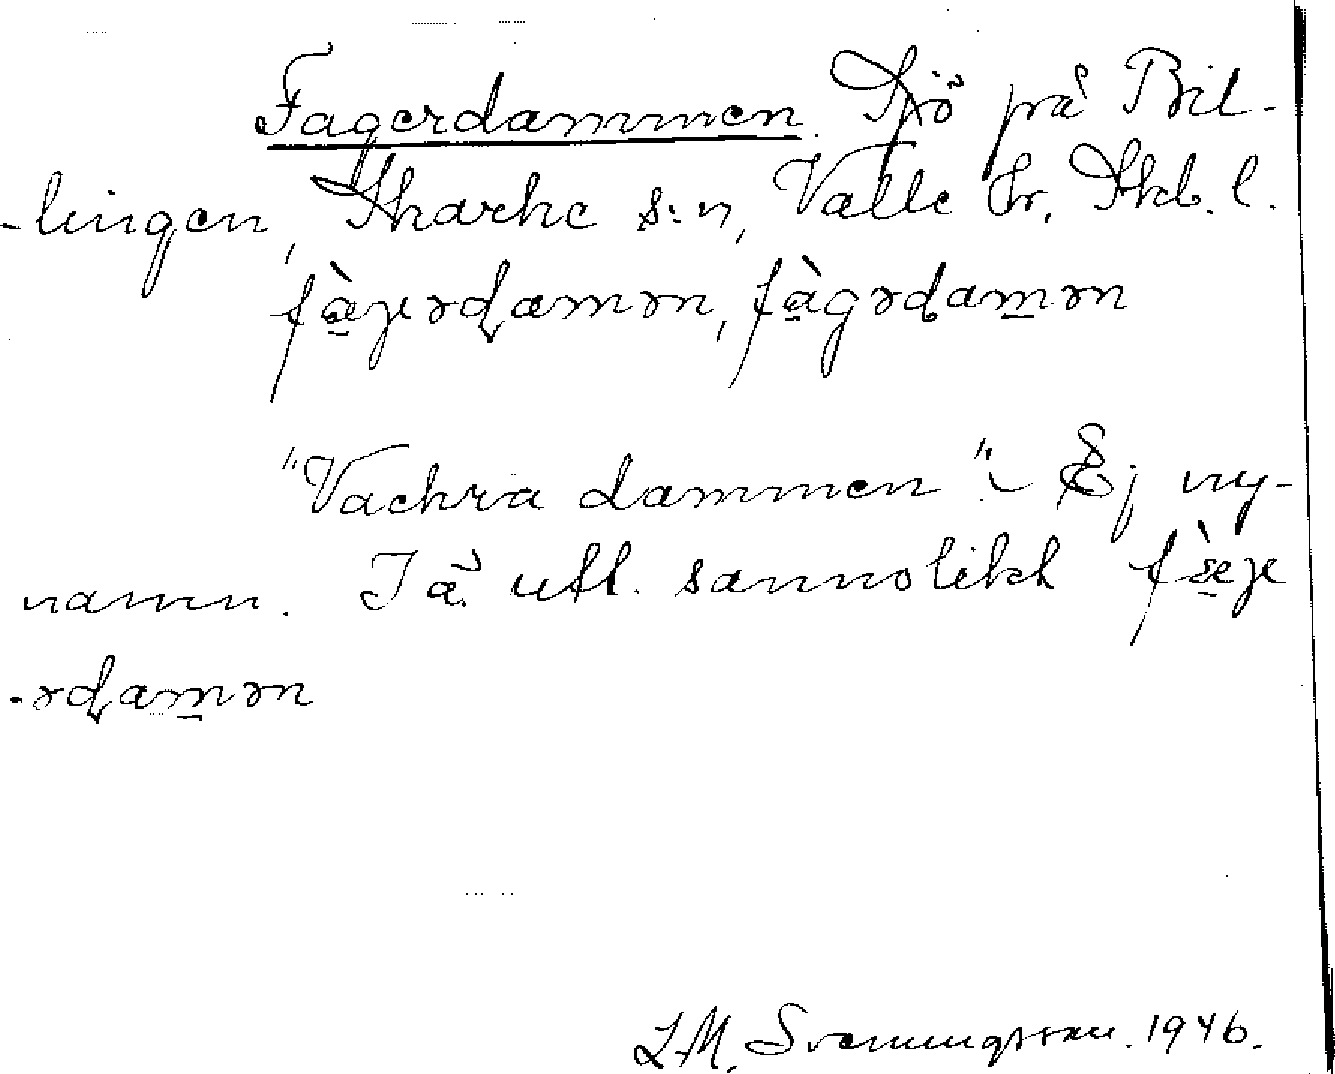 Fagerdammen. Sjö på Bil-
-lingen, Skarke s:n, Valle hr. Skb. l.
fæ̀gərdamən, fàgədamən
"Vackra dammen". – Ej ny-
namn. I ä. utt. sannolikt fæ̀ge
-ərdamən
L.M. Svenungsson. 1946.